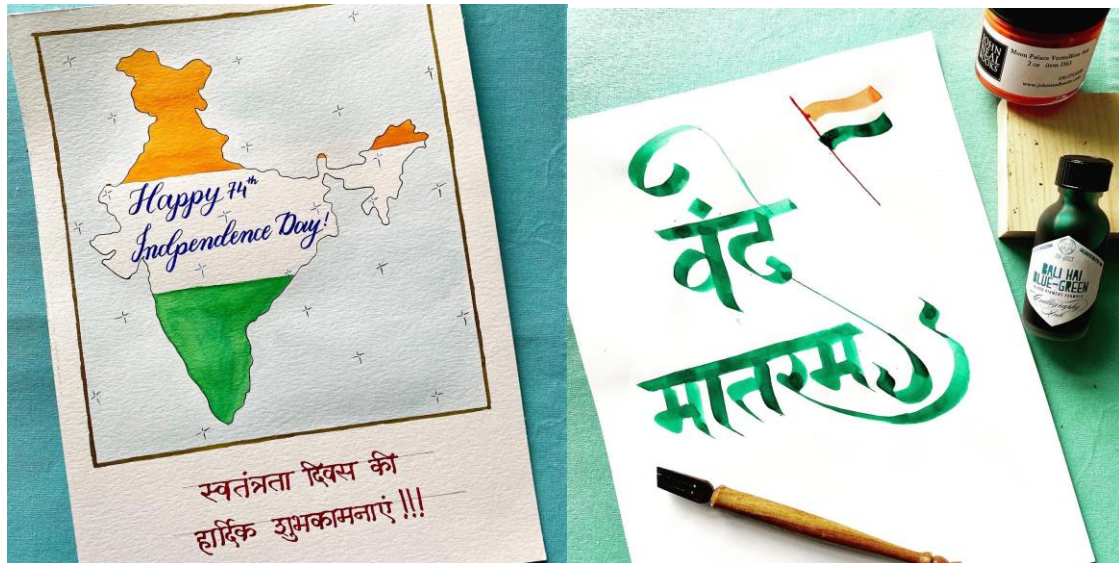 Happy 74th
Indpendence Day!
स्वतंत्रता दिवस की
हार्दिक शुभकामनाएं !!!
वंदे
मातरम्
JOHN
NEAL
BOOKS
Moon Palace Vermillion Ink
2 oz item
BALI HAI
BLUE-GREEN
Calligraphy
Ink